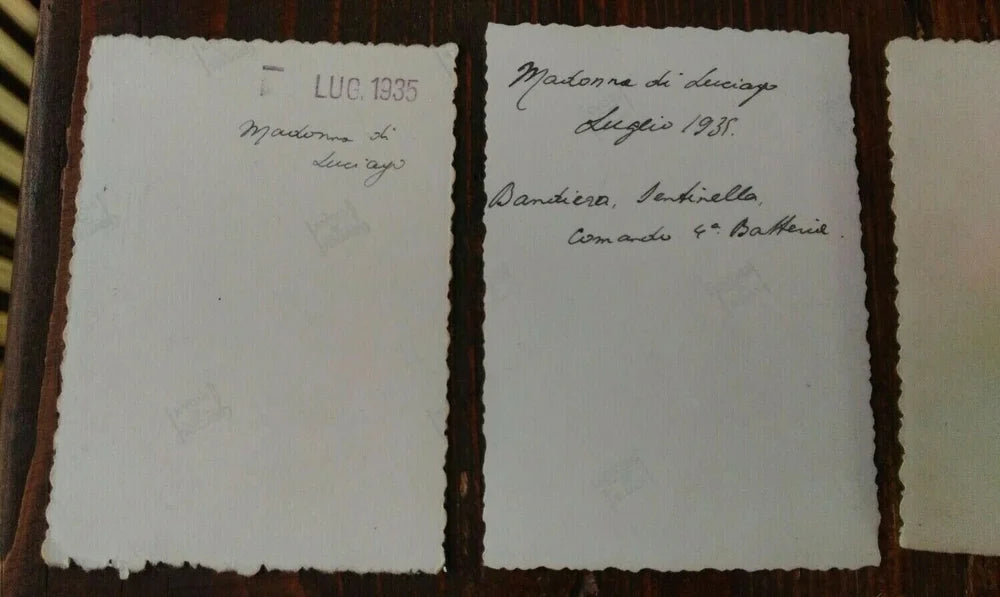 LUG. 1935
Madonna di
Luciago
Madonna di Luciago
Luglio 1935.
Bandiera, Sentinella,
Comando 4ª Batteria.